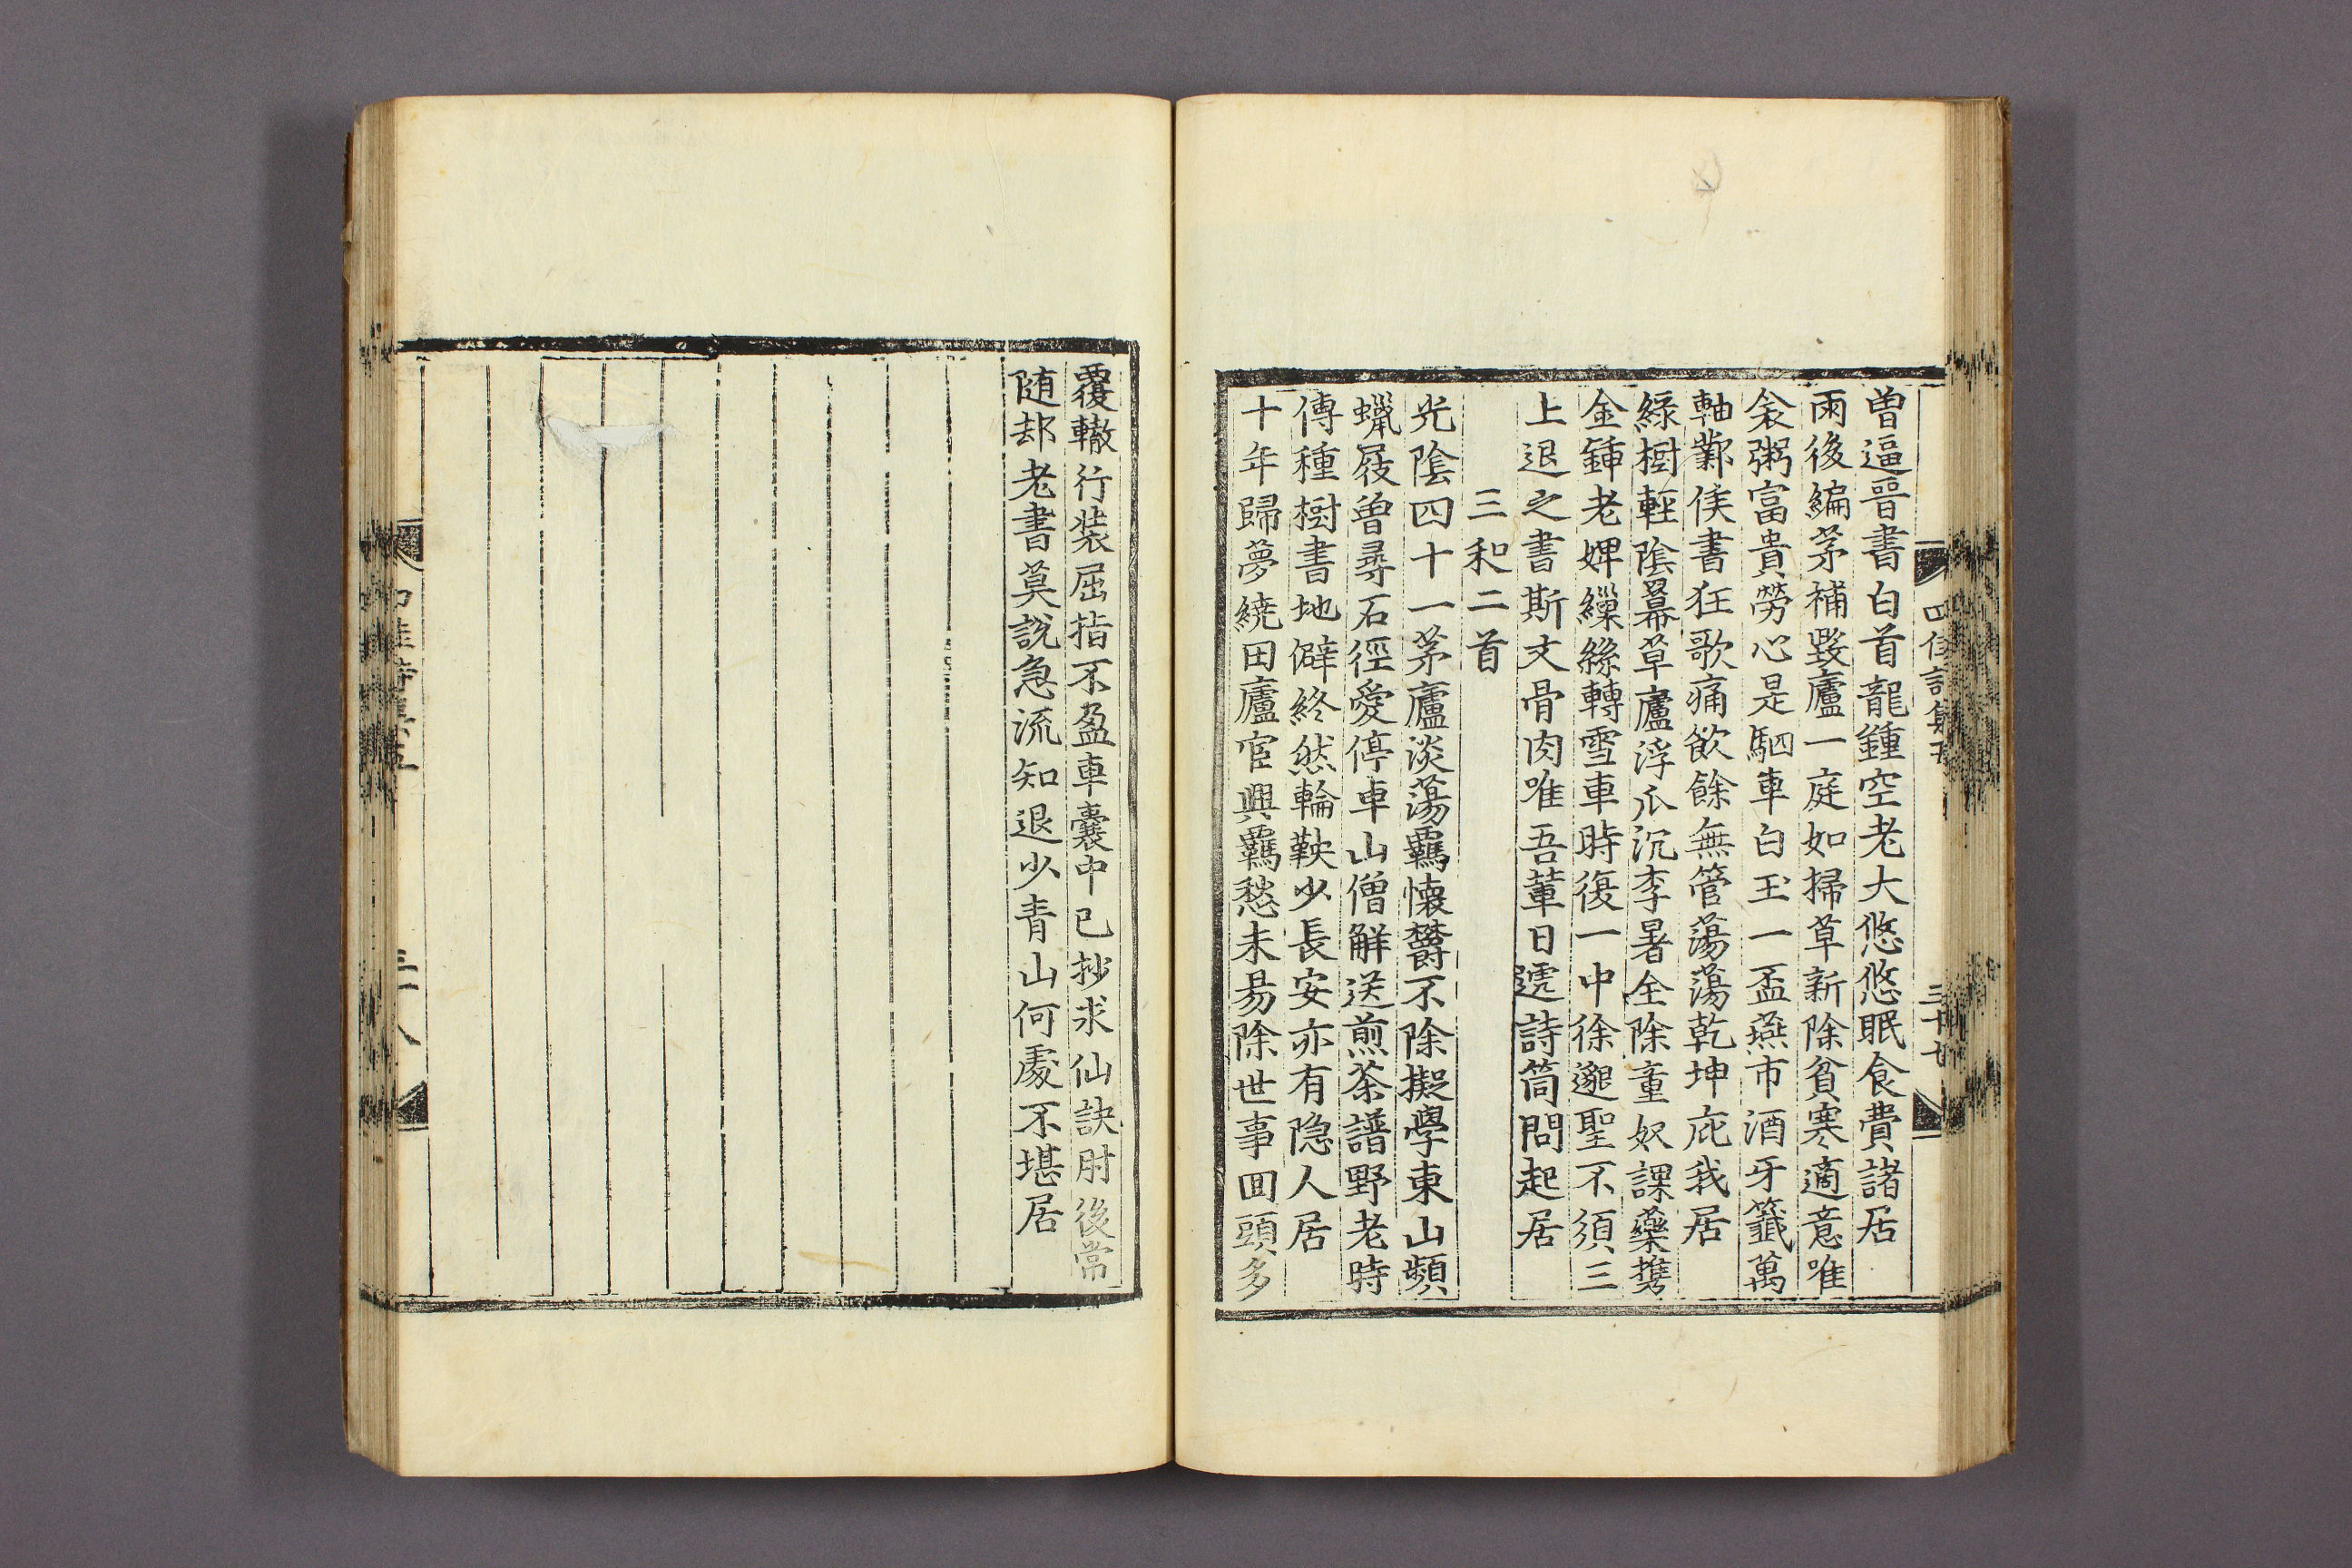 四佳詩集五
三十七
曾逼晉書白首龍鍾空老大悠悠眠食費諸居
雨後編茅補毀廬一庭如掃草新除貧寒適意唯
衾粥富貴勞心是駟車白玉一盃燕市酒牙籤萬
軸鄴侯書狂歌痛飲餘無管蕩蕩乾坤庇我居
綠樹輕陰羃草廬浮瓜沉李暑全除童奴課藥攜
金鍤老婢繅絲轉雪車時復一中徐邈聖不須三
上退之書斯文骨肉唯吾輩日遞詩筒問起居
三和二首
光陰四十一茅廬淡蕩羈懷欝不除擬學東山頻
蠟屐曾尋石徑愛停車山僧解送煎茶譜野老時
傳種樹書地僻終然輪鞅少長安亦有隐人居
十年歸夢繞田廬宦興羈愁未昜除世事回頭多
覆轍行裝屈指不盈車囊中已抄求仙訣肘後常
随却老書莫說急流知退少青山何處不堪居
三十八